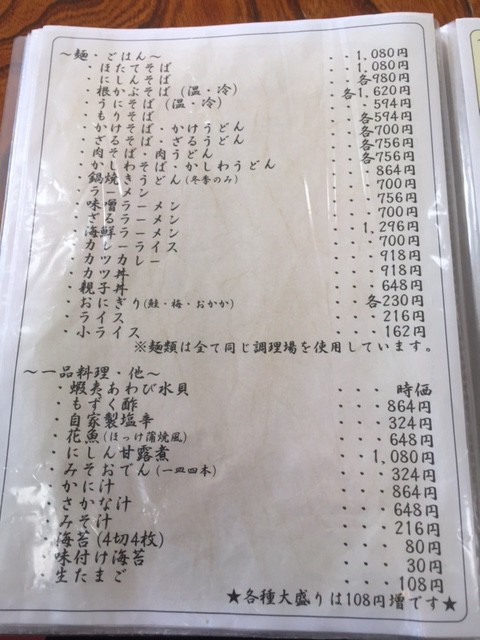 ～麺・ごはん～
・ほたてそば ・・1,080円
・にしんそば ・・1,080円
・根かぶそば (温・冷) 各980円
・うにそば (温・冷) 各1,620円
・もりそば ・・594円
・かけそば・かけうどん 各594円
・ざるそば・ざるうどん 各700円
・肉そば・肉うどん 各756円
・かしわそば・かしわうどん 各756円
・鍋焼きうどん(冬季のみ) ・・864円
・ラーメン ・・・700円
・味噌ラーメン ・・・756円
・ざるラーメン ・・・700円
・海鮮ラーメン ・・1,296円
・カレーライス ・・・700円
・カツカレー ・・・918円
・カツ丼 ・・・918円
・親子丼 ・・・648円
・おにぎり(鮭・梅・おかか) 各230円
・ライス ・・・216円
・小ライス ・・・162円
※麺類は全て同じ調理場を使用しています。
～一品料理・他～
・蝦夷あわび水貝 ・・・ 時価
・もずく酢 ・・・864円
・自家製塩辛 ・・・324円
・花魚(ほっけ蒲焼風) ・・・648円
・にしん甘露煮 ・・1,080円
・みそおでん(一皿四本) ・・・324円
・かに汁 ・・・864円
・さかな汁 ・・・648円
・みそ汁 ・・・216円
・海苔(4切4枚) ・・・80円
・味付け海苔 ・・・30円
・生たまご ・・・108円
★各種大盛りは108円増です★